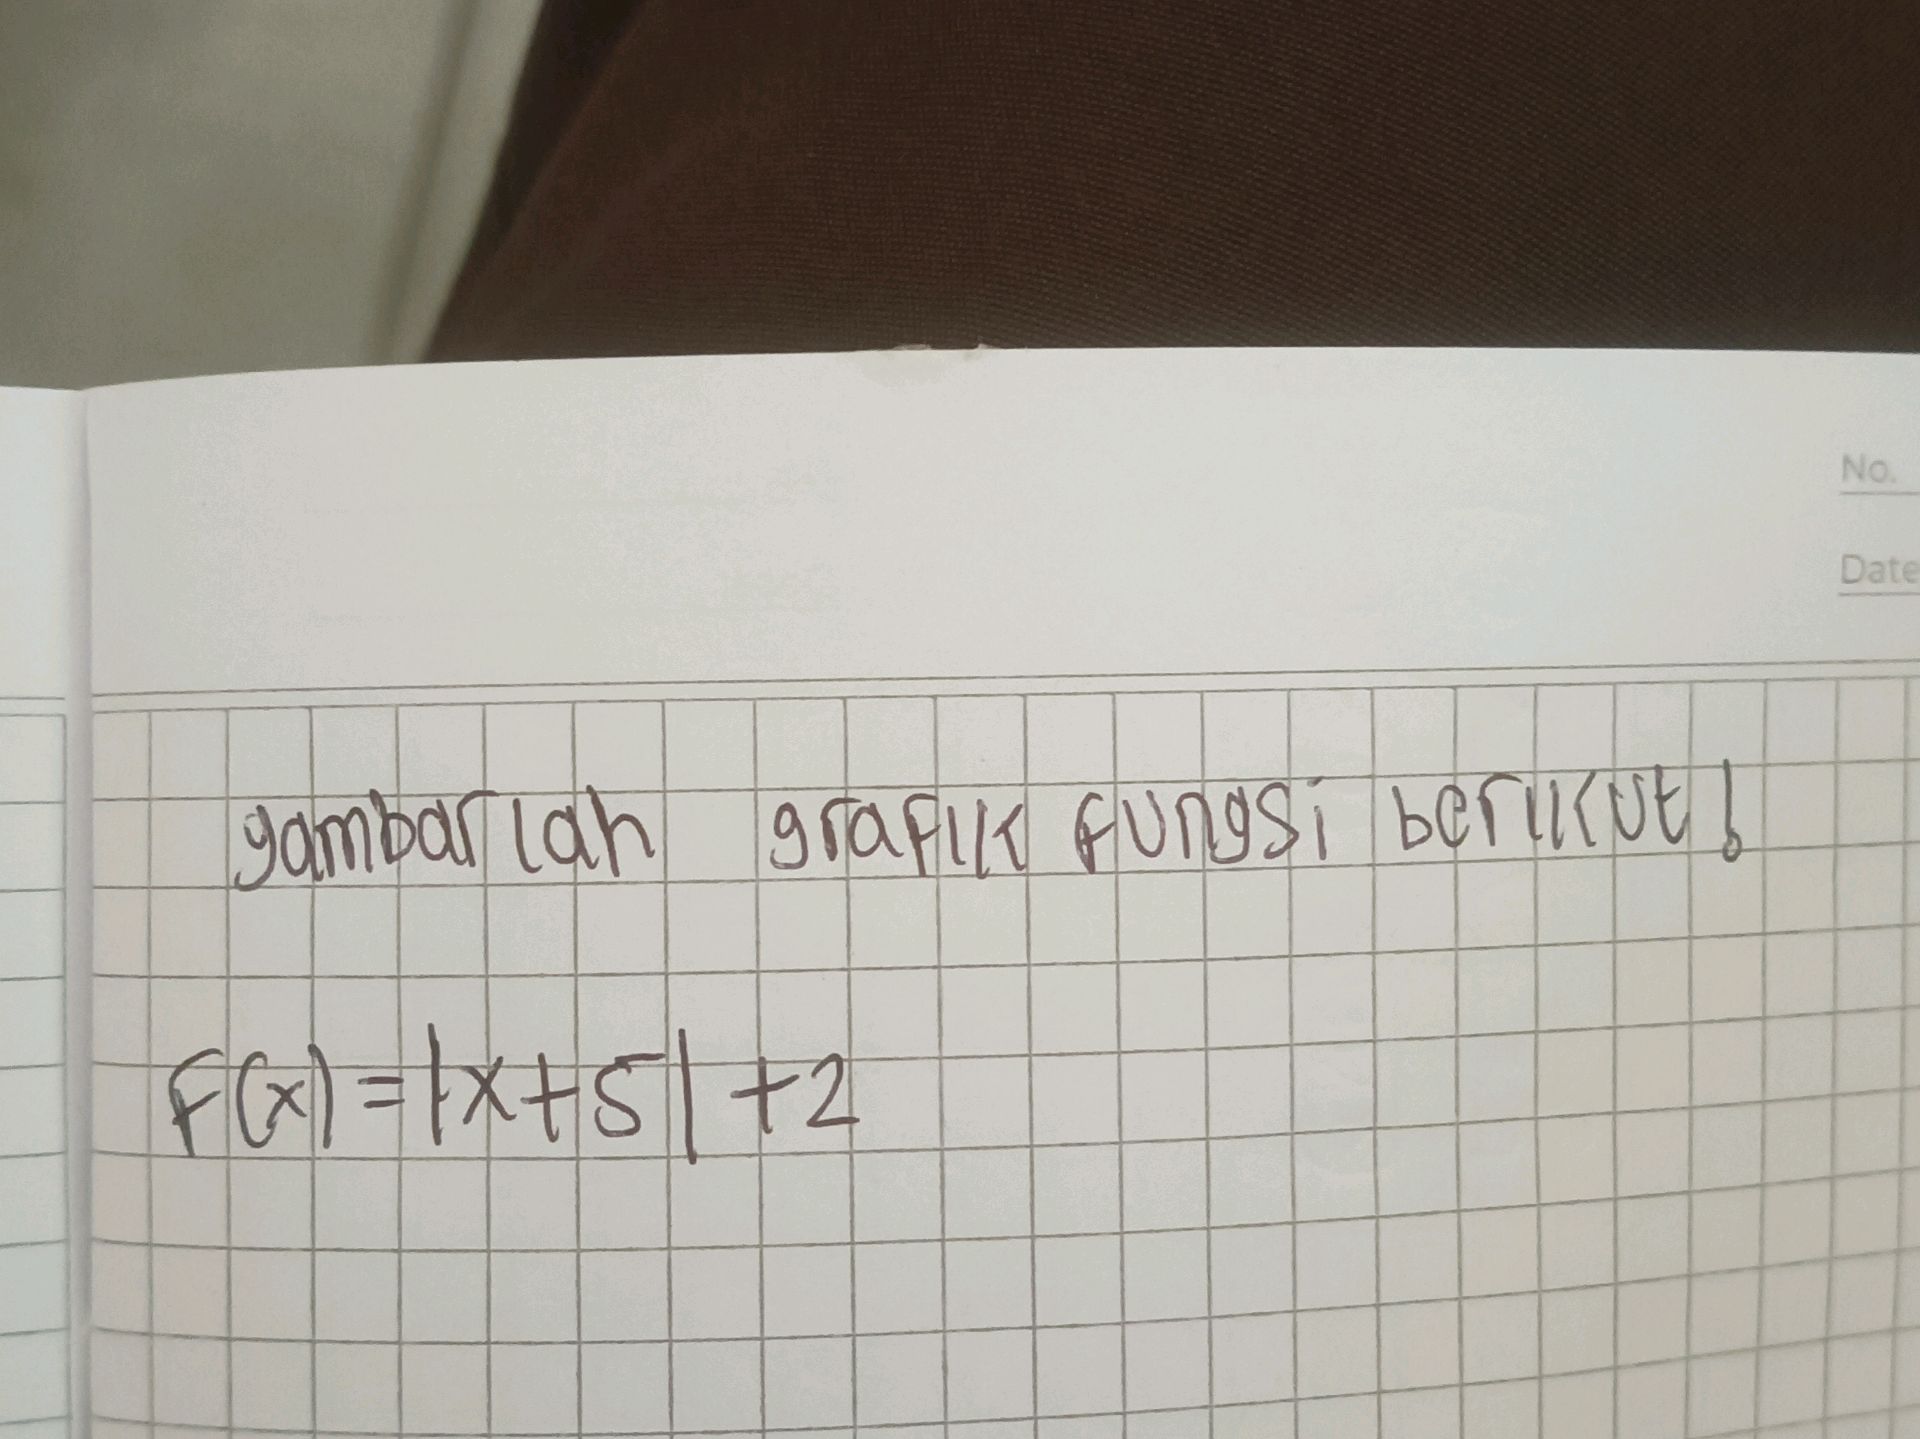 No.
Date
gambarlah grafik fungsi berikut!
F(x) = |x+5| +2